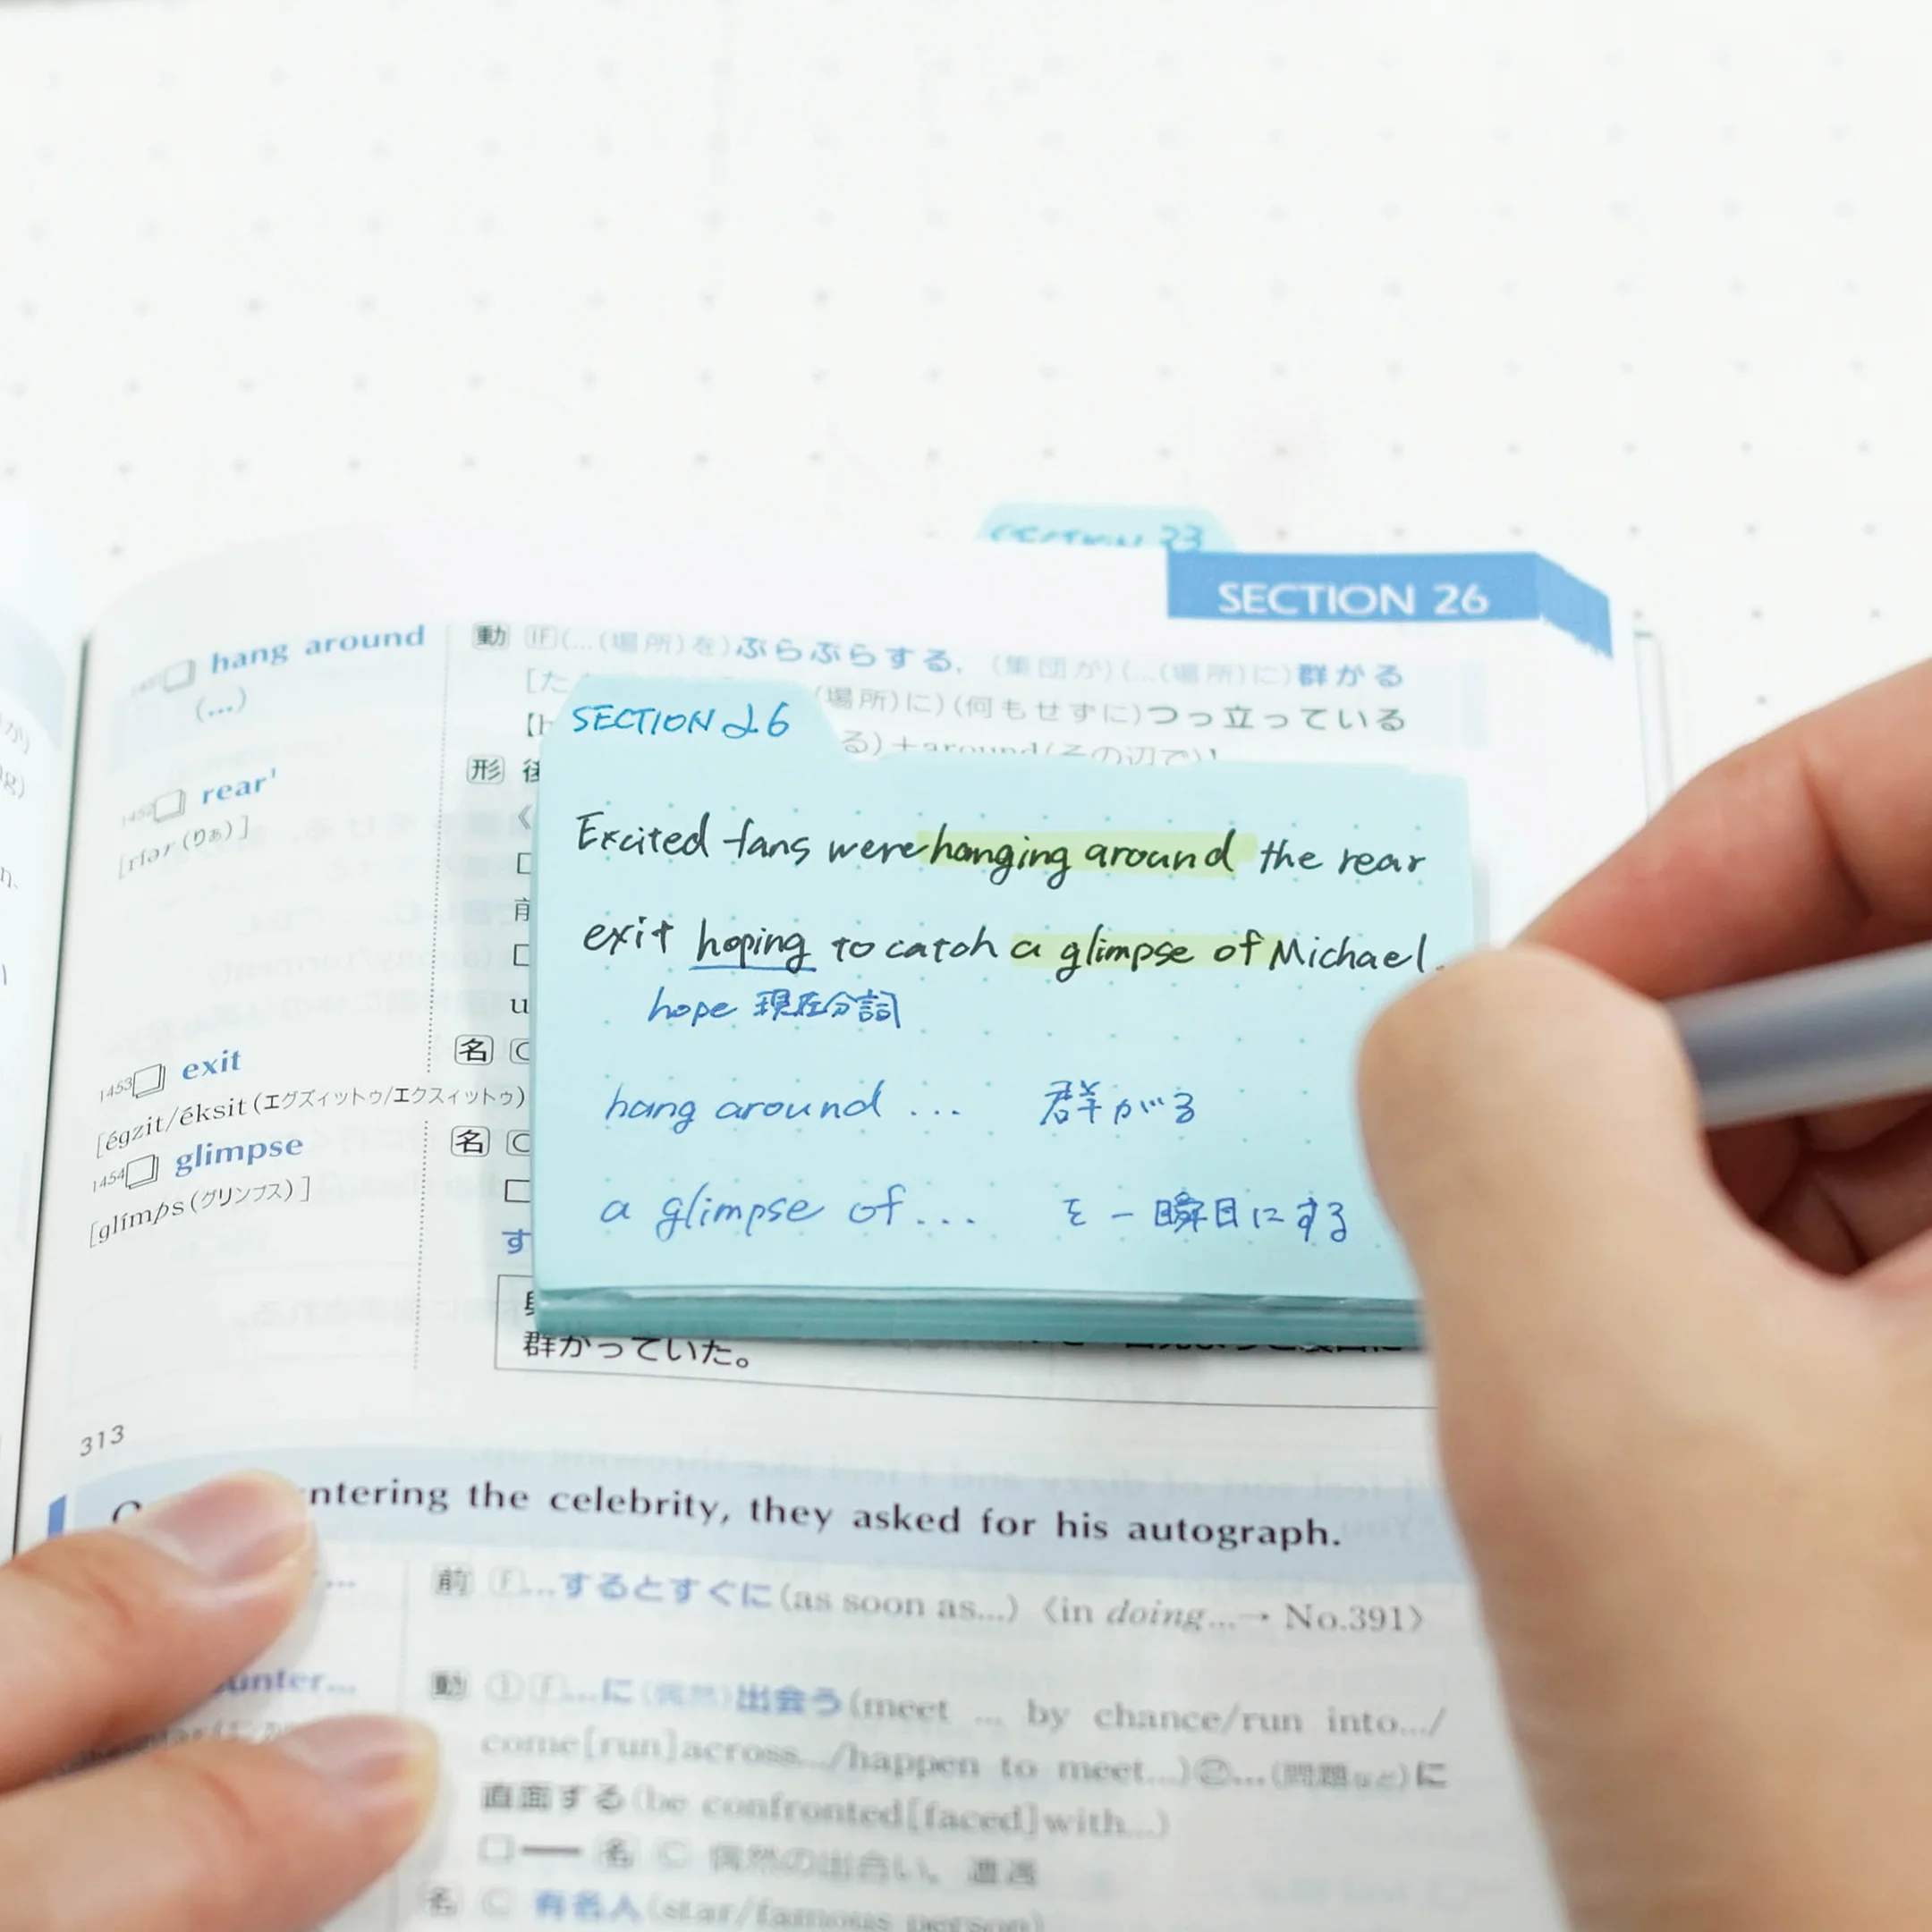 SECTION 23
SECTION 26
hang around
(...)
動 (…(場所)を)ぶらぶらする, (集団が)(…(場所)に)群がる
[た
(場所)に)(何もせずに)つっ立っている
る)+around(その辺で)
1452 rear¹
[ríər(りぁ)]
形 後
1453 exit
[égzit/éksit(エグズィットゥ/エクスィットゥ)
名 C
1454 glimpse
[glímps(グリンプス)]
名 C
す
SECTION 26
Excited fans were hanging around the rear
exit hoping to catch a glimpse of Michael.
hope 現在分詞
hang around ... 群がる
a glimpse of... を一瞬目にする
群がっていた。
313
ntering the celebrity, they asked for his autograph.
前 F…するとすぐに(as soon as…) 〈in doing…→ No.391〉
unter…
動 ① F…に(偶然)出会う(meet … by chance/run into…/
come[run]across…/happen to meet…)②…(問題など)に
直面する(be confronted[faced]with…)
名 C 偶然の出会い、遭遇
名 C 有名人(star/famous person)